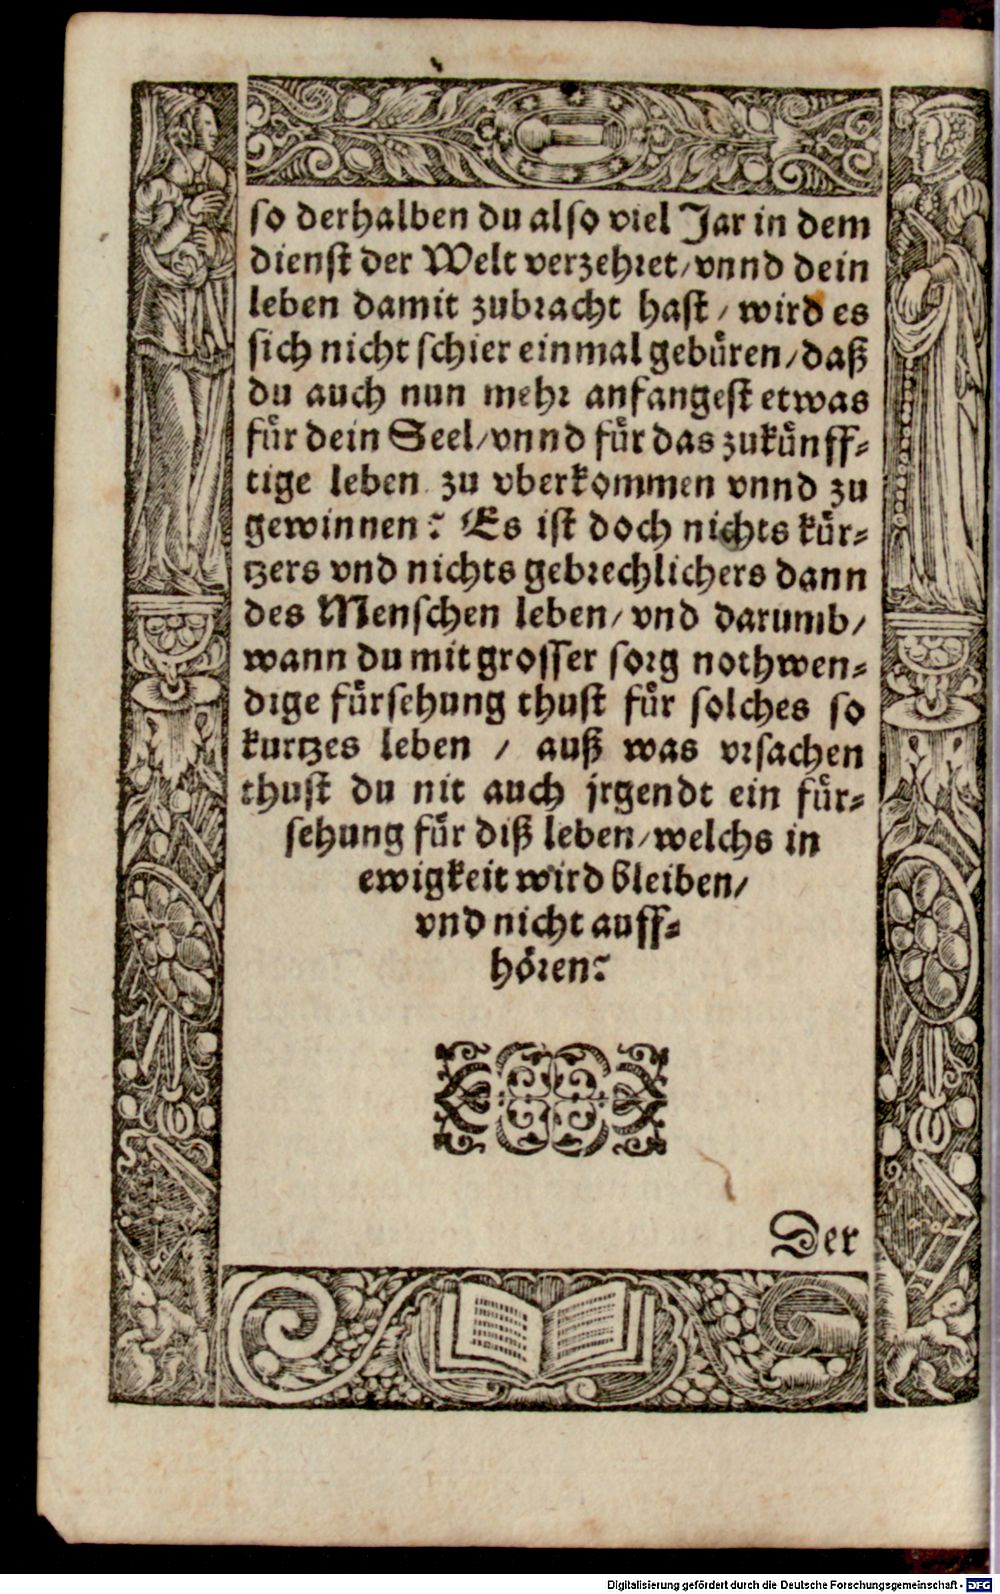 so derhalben du also viel Jar in dem
dienst der Welt verzehret/vnnd dein
leben damit zubracht hast / wird es
sich nicht schier einmal gebuͤren/daß
du auch nun mehr anfangest etwas
fuͤr dein Seel/vnnd fuͤr das zukuͤnff-
tige leben zu vberkommen vnnd zu
gewinnen? Es ist doch nichts kuͤr-
tzers vnd nichts gebrechlichers dann
des Menschen leben/ vnd darumb/
wann du mit grosser sorg nothwen-
dige fuͤrsehung thust fuͤr solches so
kurtzes leben / auß was vrsachen
thust du nit auch jrgendt ein fuͤr-
sehung fuͤr diß leben/welchs in
ewigkeit wird bleiben/
vnd nicht auff-
hoͤren?
Der
Digitalisierung gefördert durch die Deutsche Forschungsgemeinschaft - DFG